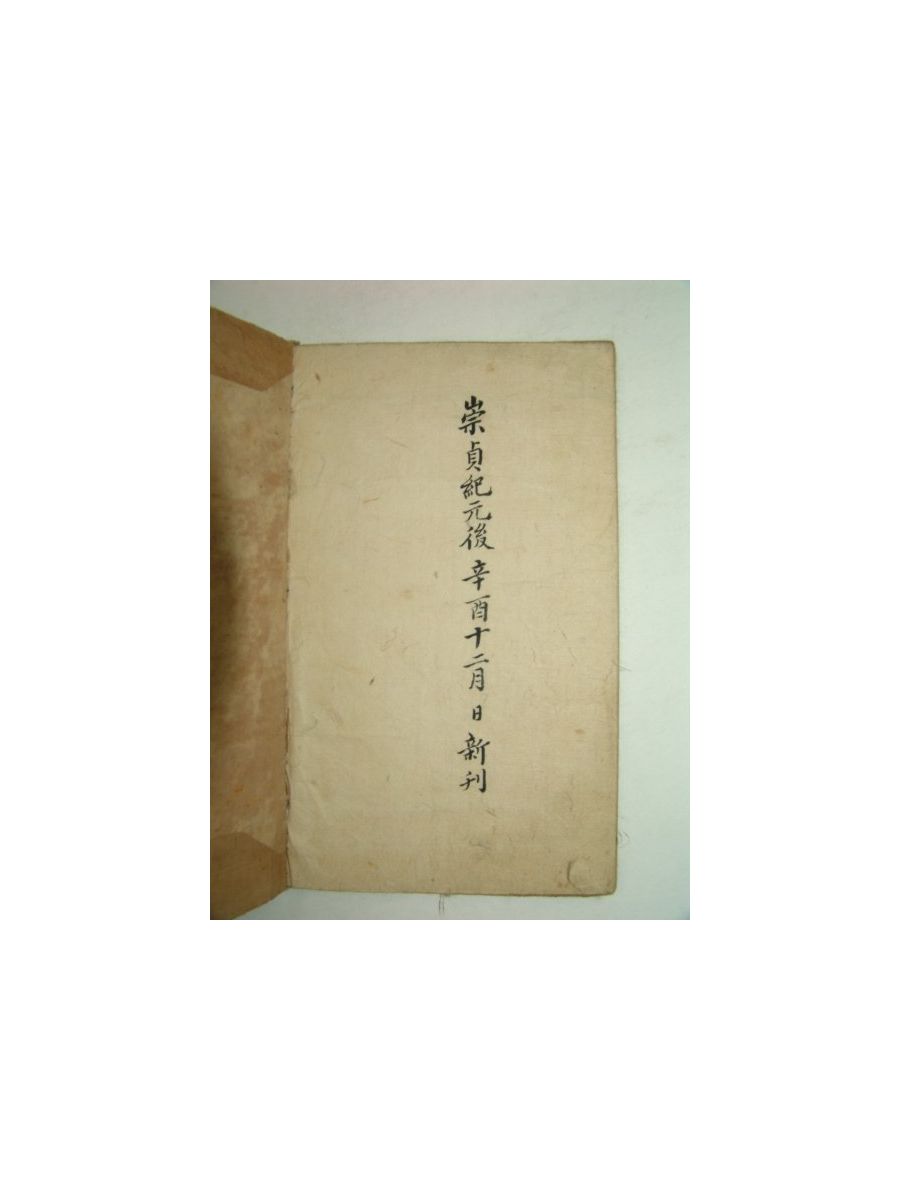 崇貞紀元後辛酉十二月日新刊